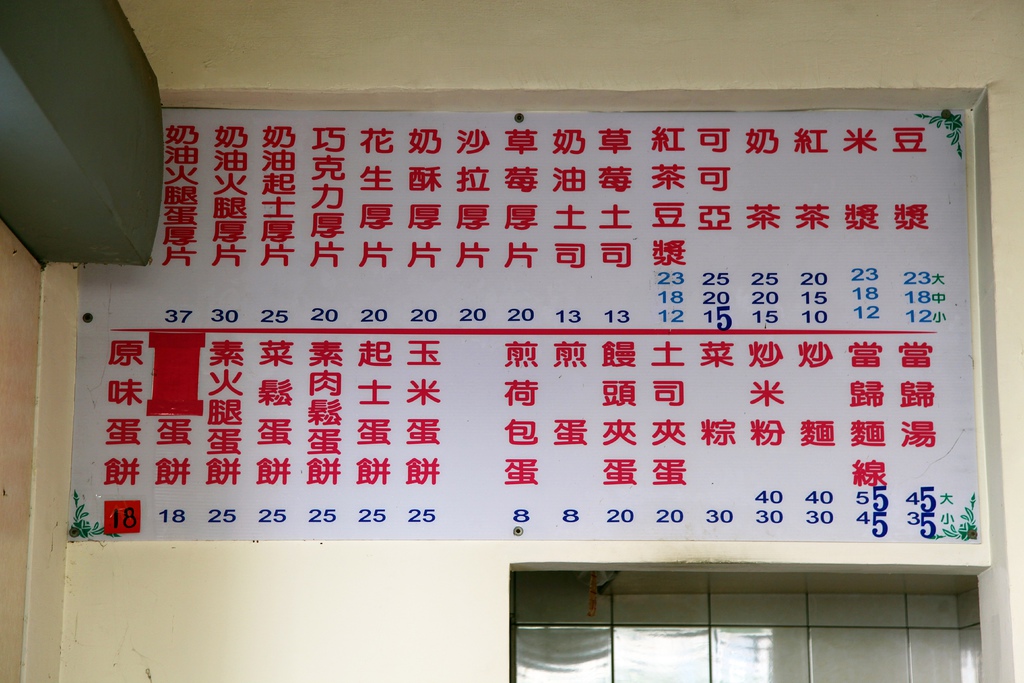 豆漿 23大 18中 12小
米漿 23 18 12
紅茶 20 15 10
奶茶 25 20 15
可可亞 25 20 15
紅茶豆漿 23 18 12
草莓土司 13
奶油土司 13
草莓厚片 20
沙拉厚片 20
奶酥厚片 20
花生厚片 20
巧克力厚片 20
奶油起士厚片 25
奶油火腿厚片 30
奶油火腿蛋厚片 37
當歸湯 45大 35小
當歸麵線 55 45
炒麵 40 30
炒米粉 40 30
菜粽 30
土司夾蛋 20
饅頭夾蛋 20
煎蛋 8
煎荷包蛋 8
玉米蛋餅 25
起士蛋餅 25
素肉鬆蛋餅 25
菜鬆蛋餅 25
素火腿蛋餅 25
蛋餅 18
原味蛋餅 18